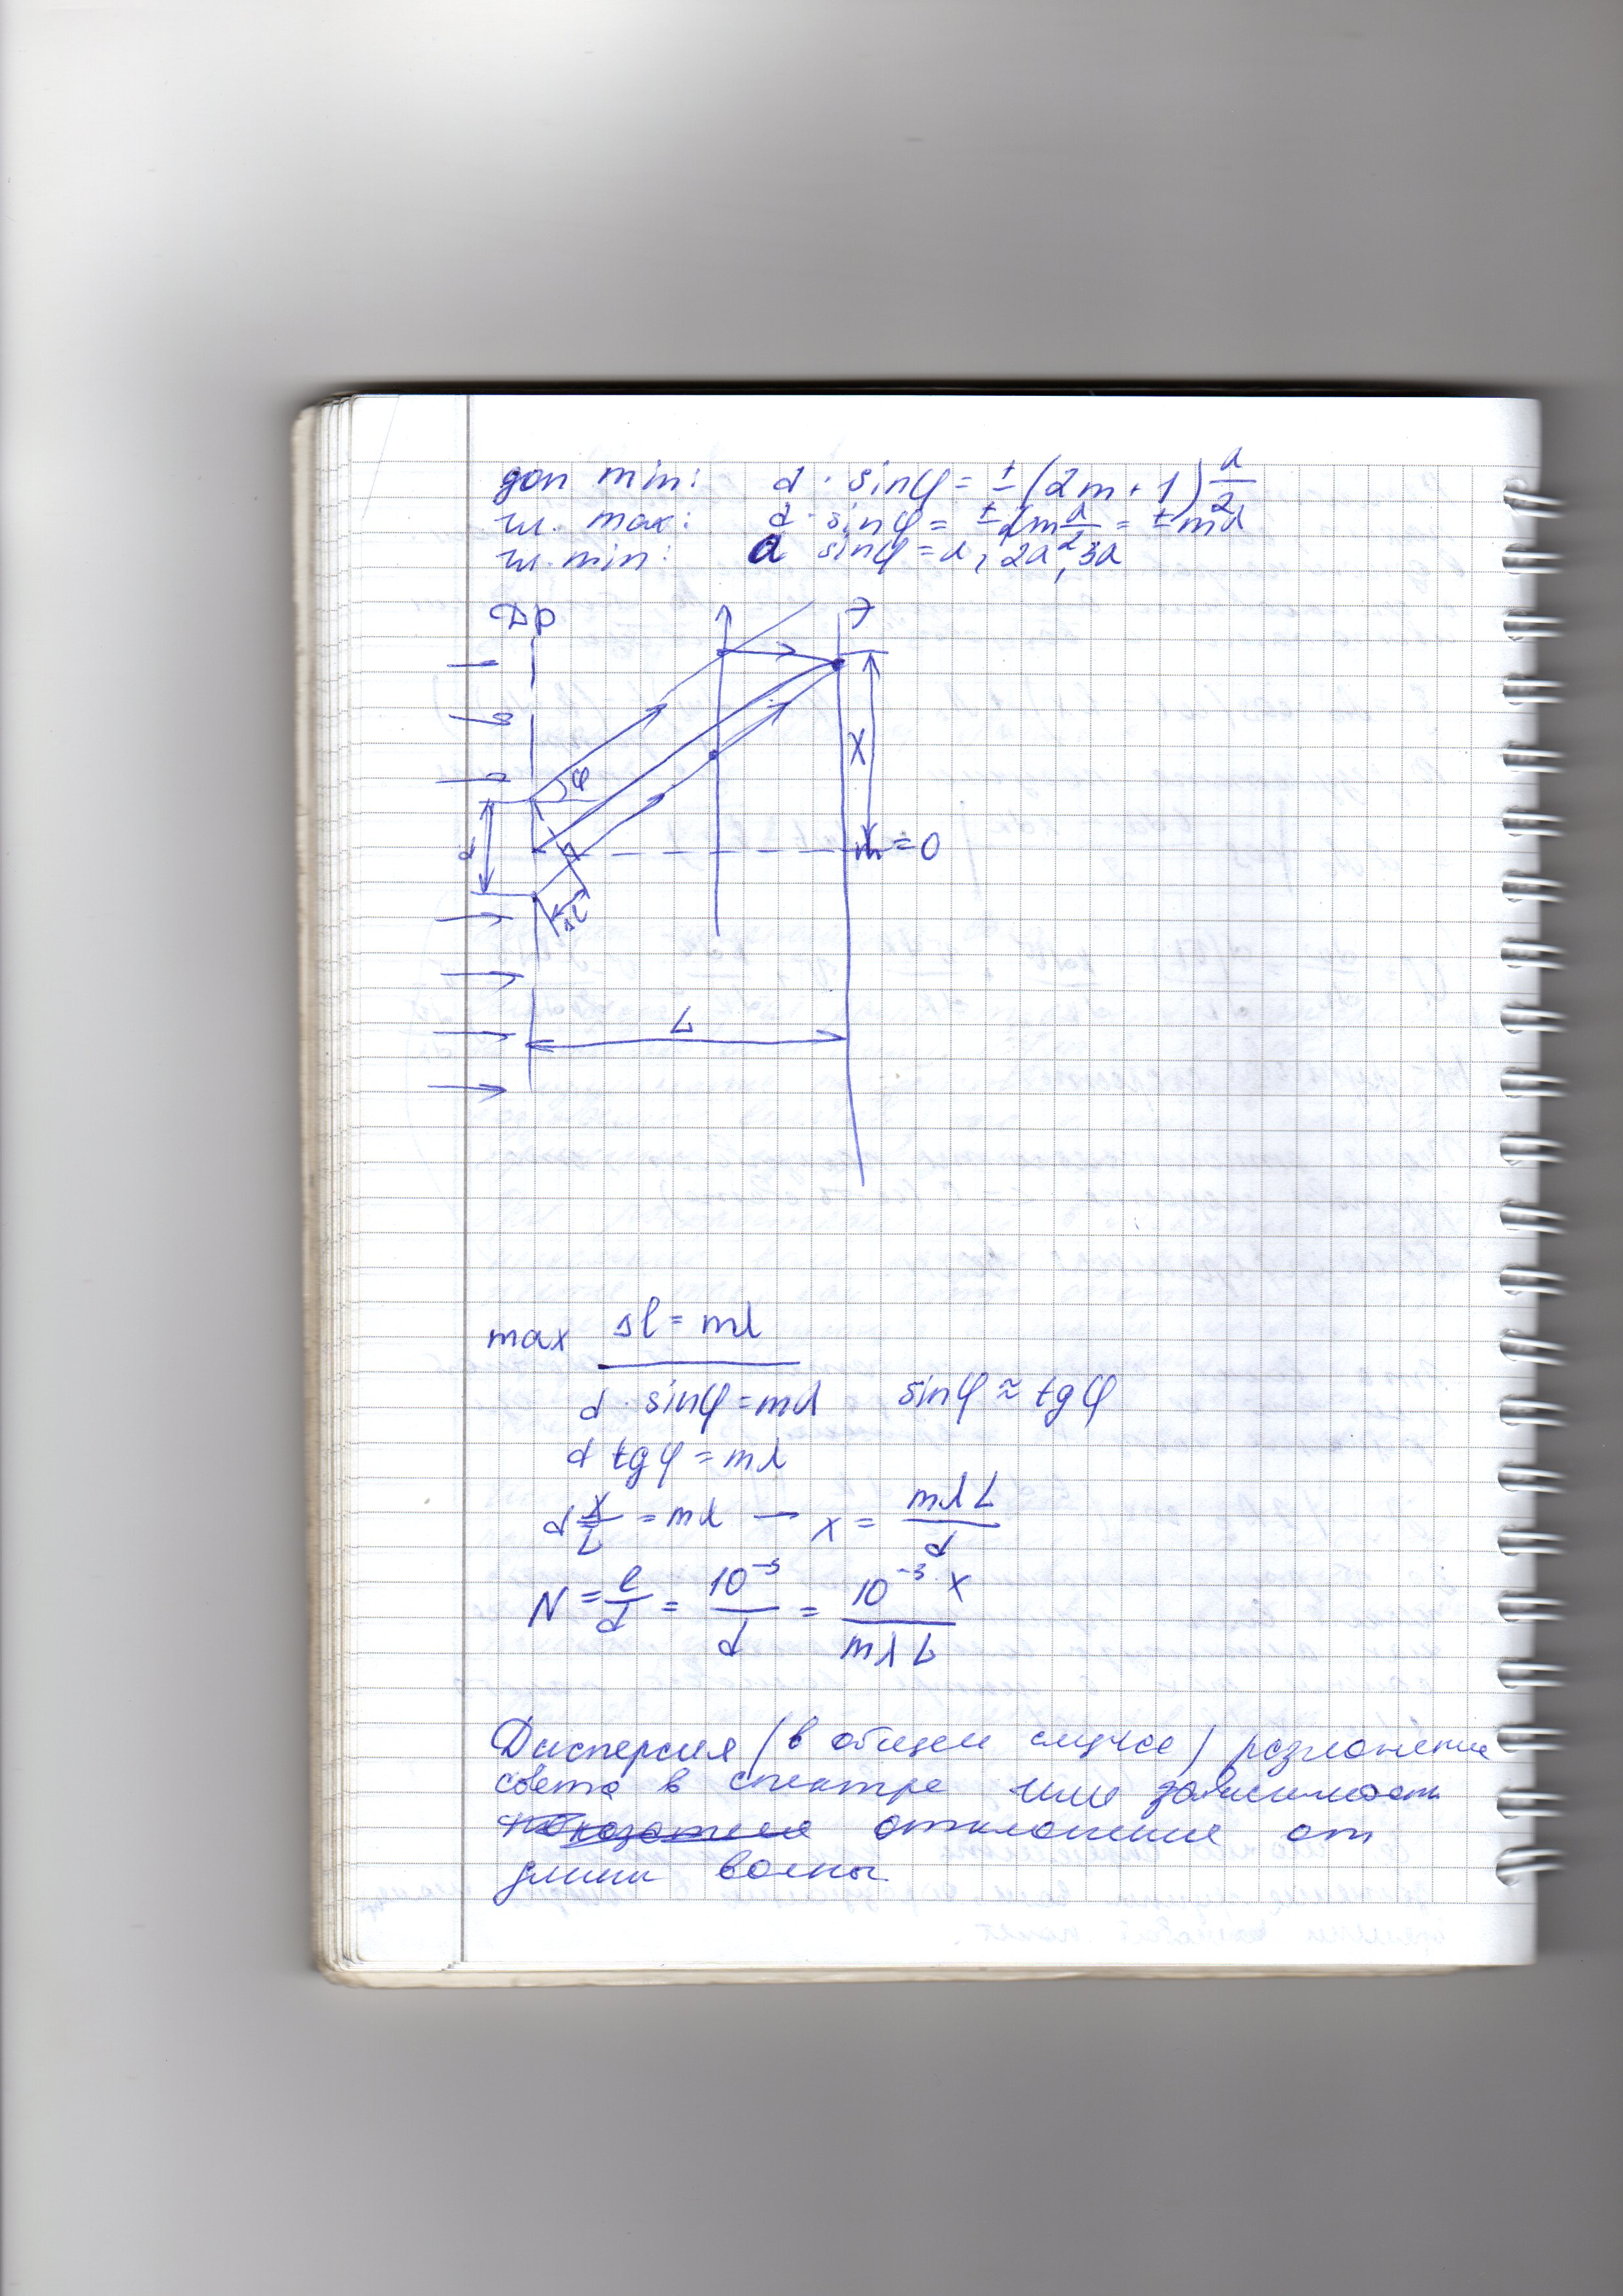 доп min: d · sinφ = ± (2m + 1) λ/2
гл. max: d · sinφ = ± 2m λ/2 = ± mλ
гл. min: a sinφ = λ, 2λ, 3λ
Др Э
φ
X
d
m = 0
Δl
L
max Δl = mλ
d · sinφ = mλ sinφ ≈ tgφ
d tgφ = mλ
d x/L = mλ — x = mλL/d
N = l/d = 10⁻³/d = 10⁻³ · x/mλL
Дисперсия (в общем случае) разложение
света в спектре или зависимость
отклонение от
длины волны